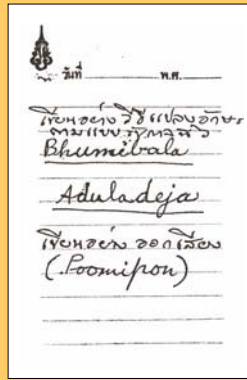 วันที่ พ.ศ.
เขียนอย่างวิธีแปลงอักษร
ตามแบบ
Bhumibala
Aduladeja
เขียนอย่างออกเสียง
(Poomipon)